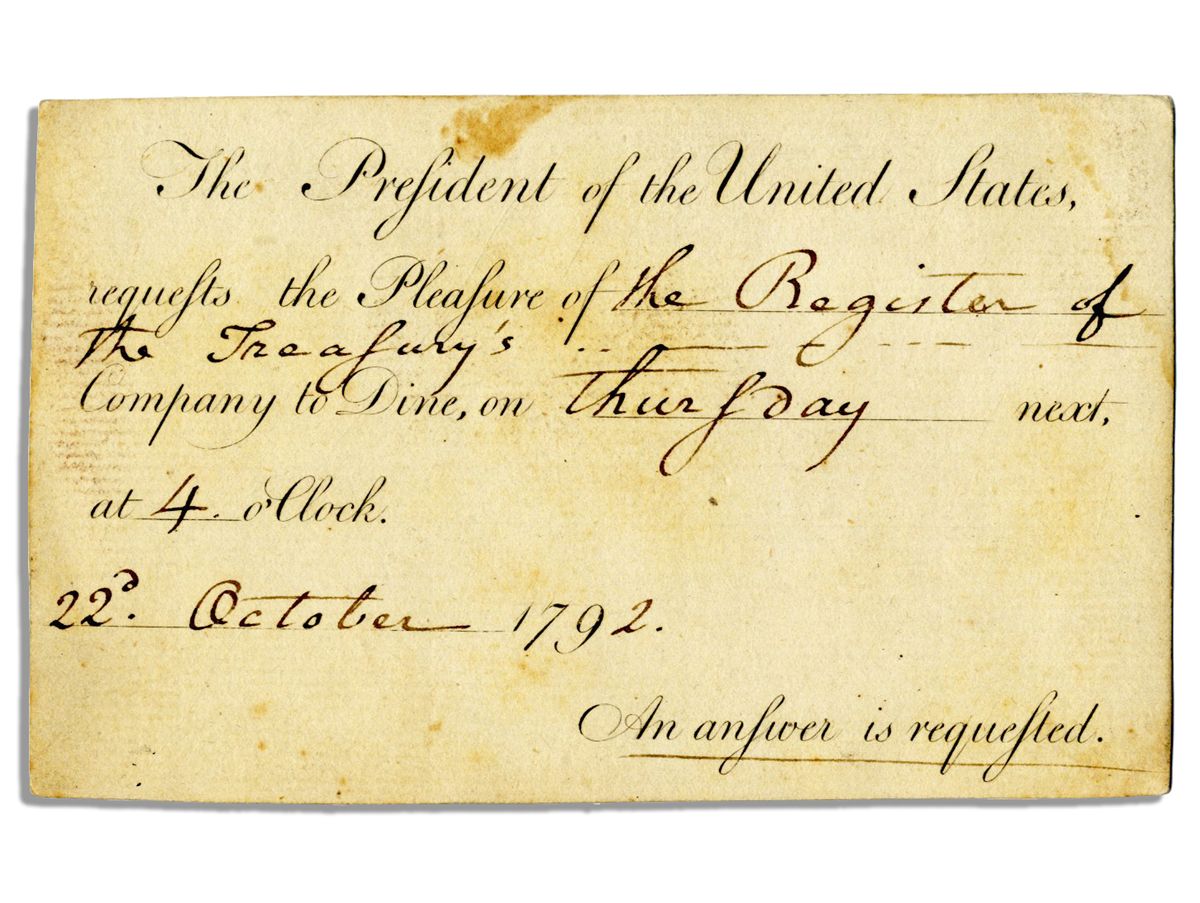 The Preſident of the United States,
requeſts the Pleaſure of the Register of
the Treaſury's
Company to Dine, on Thurſday next,
at 4. o'Clock.
22d. October 1792.
An anſwer is requeſted.